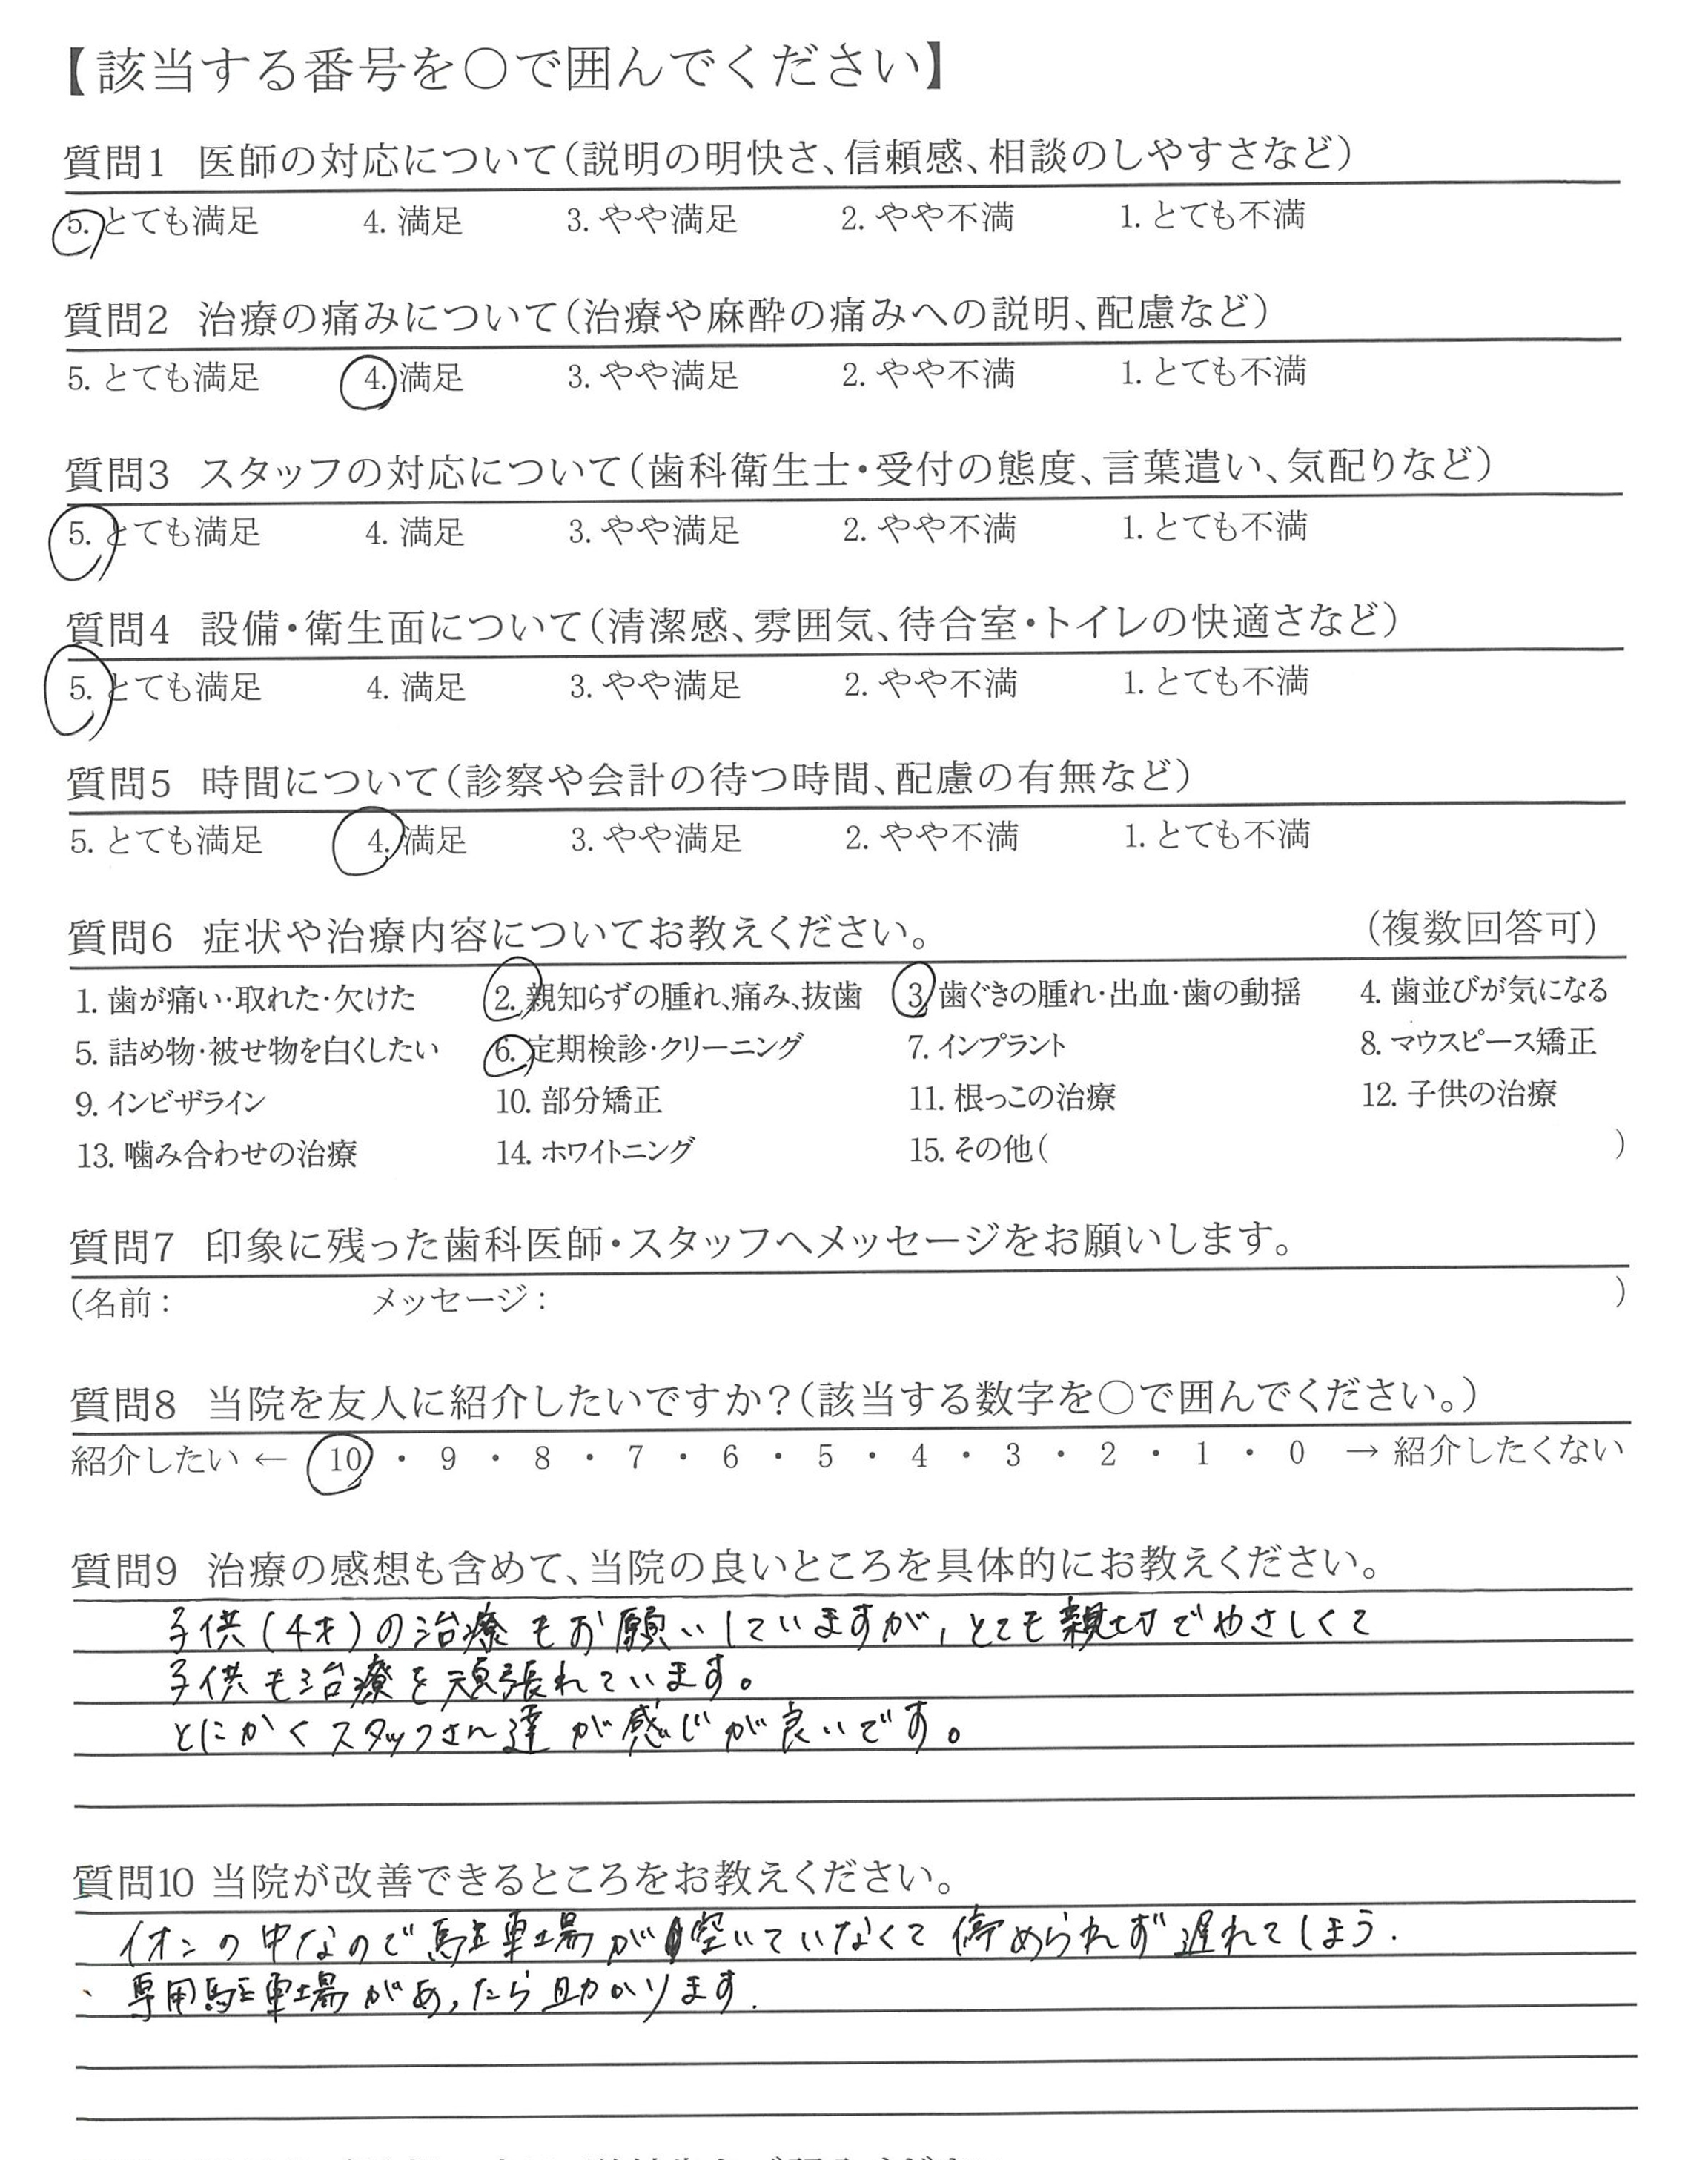 【該当する番号を〇で囲んでください】
質問1 医師の対応について(説明の明快さ、信頼感、相談のしやすさなど)
5. とても満足 4. 満足 3. やや満足 2. やや不満 1. とても不満
質問2 治療の痛みについて(治療や麻酔の痛みへの説明、配慮など)
5. とても満足 4. 満足 3. やや満足 2. やや不満 1. とても不満
質問3 スタッフの対応について(歯科衛生士・受付の態度、言葉遣い、気配りなど)
5. とても満足 4. 満足 3. やや満足 2. やや不満 1. とても不満
質問4 設備・衛生面について(清潔感、雰囲気、待合室・トイレの快適さなど)
5. とても満足 4. 満足 3. やや満足 2. やや不満 1. とても不満
質問5 時間について(診察や会計の待つ時間、配慮の有無など)
5. とても満足 4. 満足 3. やや満足 2. やや不満 1. とても不満
質問6 症状や治療内容についてお教えください。 (複数回答可)
1. 歯が痛い・取れた・欠けた 2. 親知らずの腫れ、痛み、抜歯 3. 歯ぐきの腫れ・出血・歯の動揺 4. 歯並びが気になる
5. 詰め物・被せ物を白くしたい 6. 定期検診・クリーニング 7. インプラント 8. マウスピース矯正
9. インビザライン 10. 部分矯正 11. 根っこの治療 12. 子供の治療
13. 噛み合わせの治療 14. ホワイトニング 15. その他( )
質問7 印象に残った歯科医師・スタッフへメッセージをお願いします。
(名前: メッセージ: )
質問8 当院を友人に紹介したいですか?(該当する数字を〇で囲んでください。)
紹介したい ← 10 ・ 9 ・ 8 ・ 7 ・ 6 ・ 5 ・ 4 ・ 3 ・ 2 ・ 1 ・ 0 → 紹介したくない
質問9 治療の感想も含めて、当院の良いところを具体的にお教えください。
子供(4才)の治療もお願いしていますが、とても親切でやさしくて
子供も治療を頑張れています。
とにかくスタッフさん達が感じが良いです。
質問10 当院が改善できるところをお教えください。
イオンの中なので駐車場が空いていなくて停められず遅れてしまう.
専用駐車場があったら助かります.